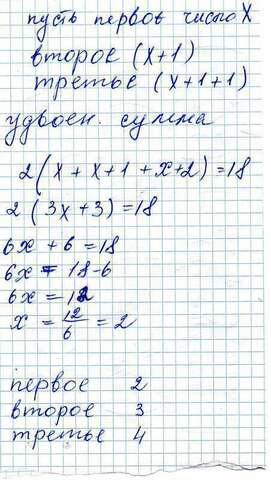 пусть первое число X
второе (X+1)
третье (X+1+1)
удвоен. сумма
2(X+X+1+X+2)=18
2(3X+3)=18
6X+6=18
6X=18-6
6X=12
X=12/6=2
первое 2
второе 3
третье 4